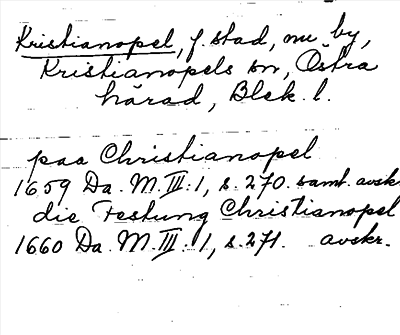 Kristianopel, f. stad, nu by,
Kristianopels sn, Östra
härad, Blek. l.
paa Christianopel
1659 Da. M. III: 1, s. 270. samt. avskr.
die Festung Christianopel
1660 Da. M. III: 1, s. 271. avskr.